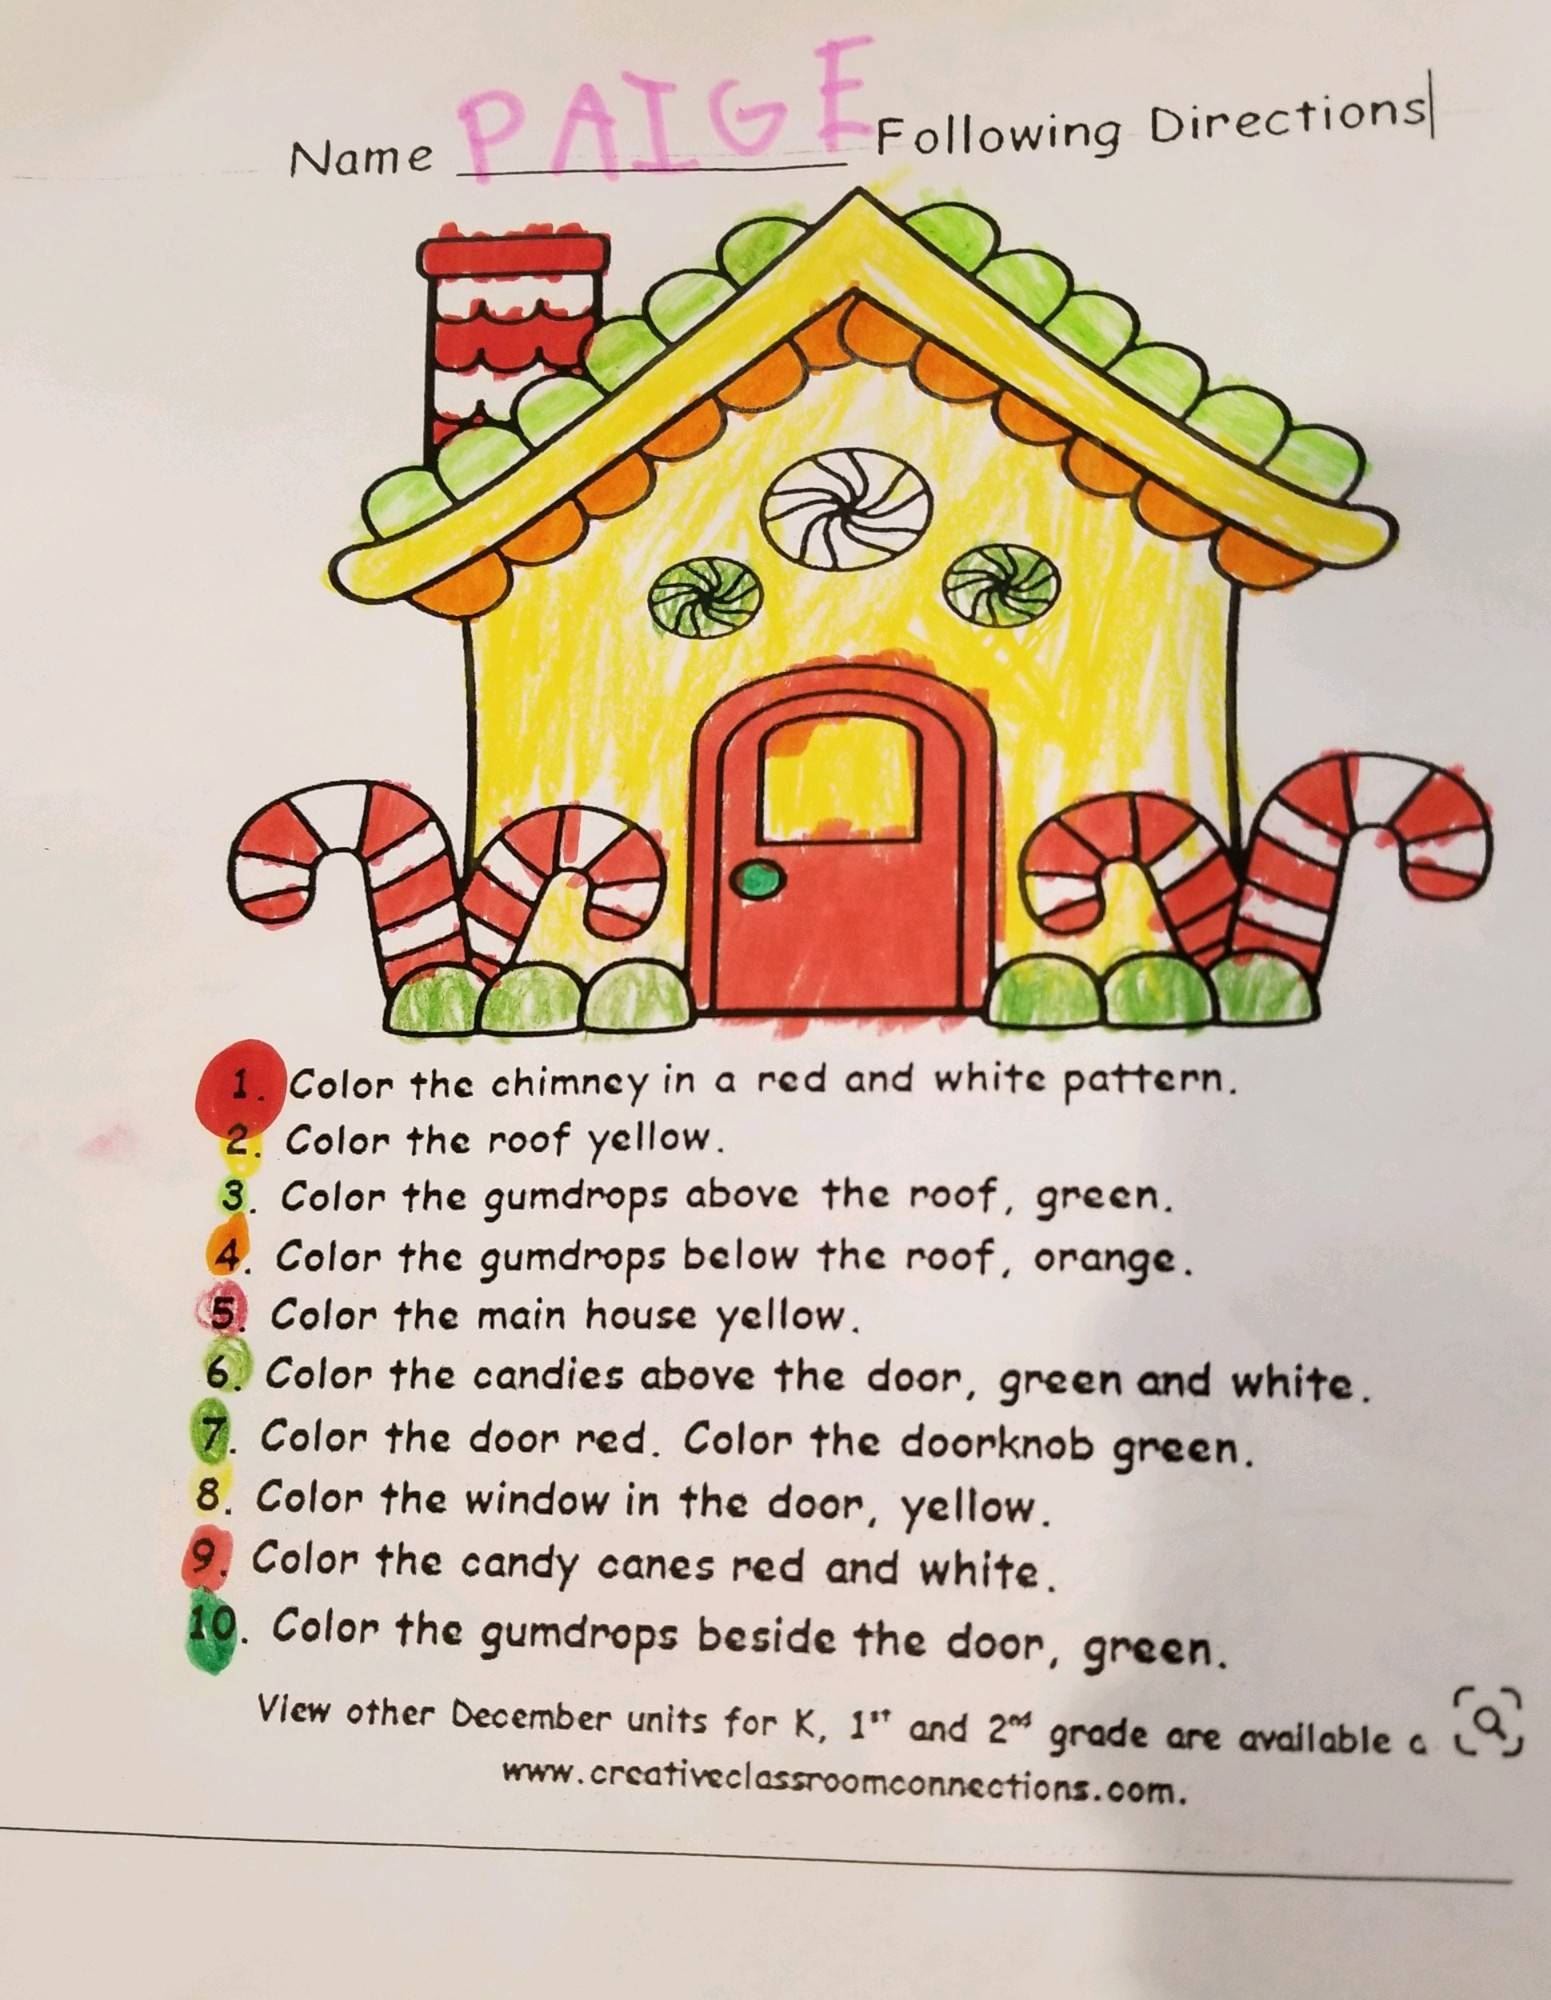 Name PAIGE Following Directions
1. Color the chimney in a red and white pattern.
2. Color the roof yellow.
3. Color the gumdrops above the roof, green.
4. Color the gumdrops below the roof, orange.
5. Color the main house yellow.
6. Color the candies above the door, green and white.
7. Color the door red. Color the doorknob green.
8. Color the window in the door, yellow.
9. Color the candy canes red and white.
10. Color the gumdrops beside the door, green.
View other December units for K, 1st and 2nd grade are available a
www.creativeclassroomconnections.com.